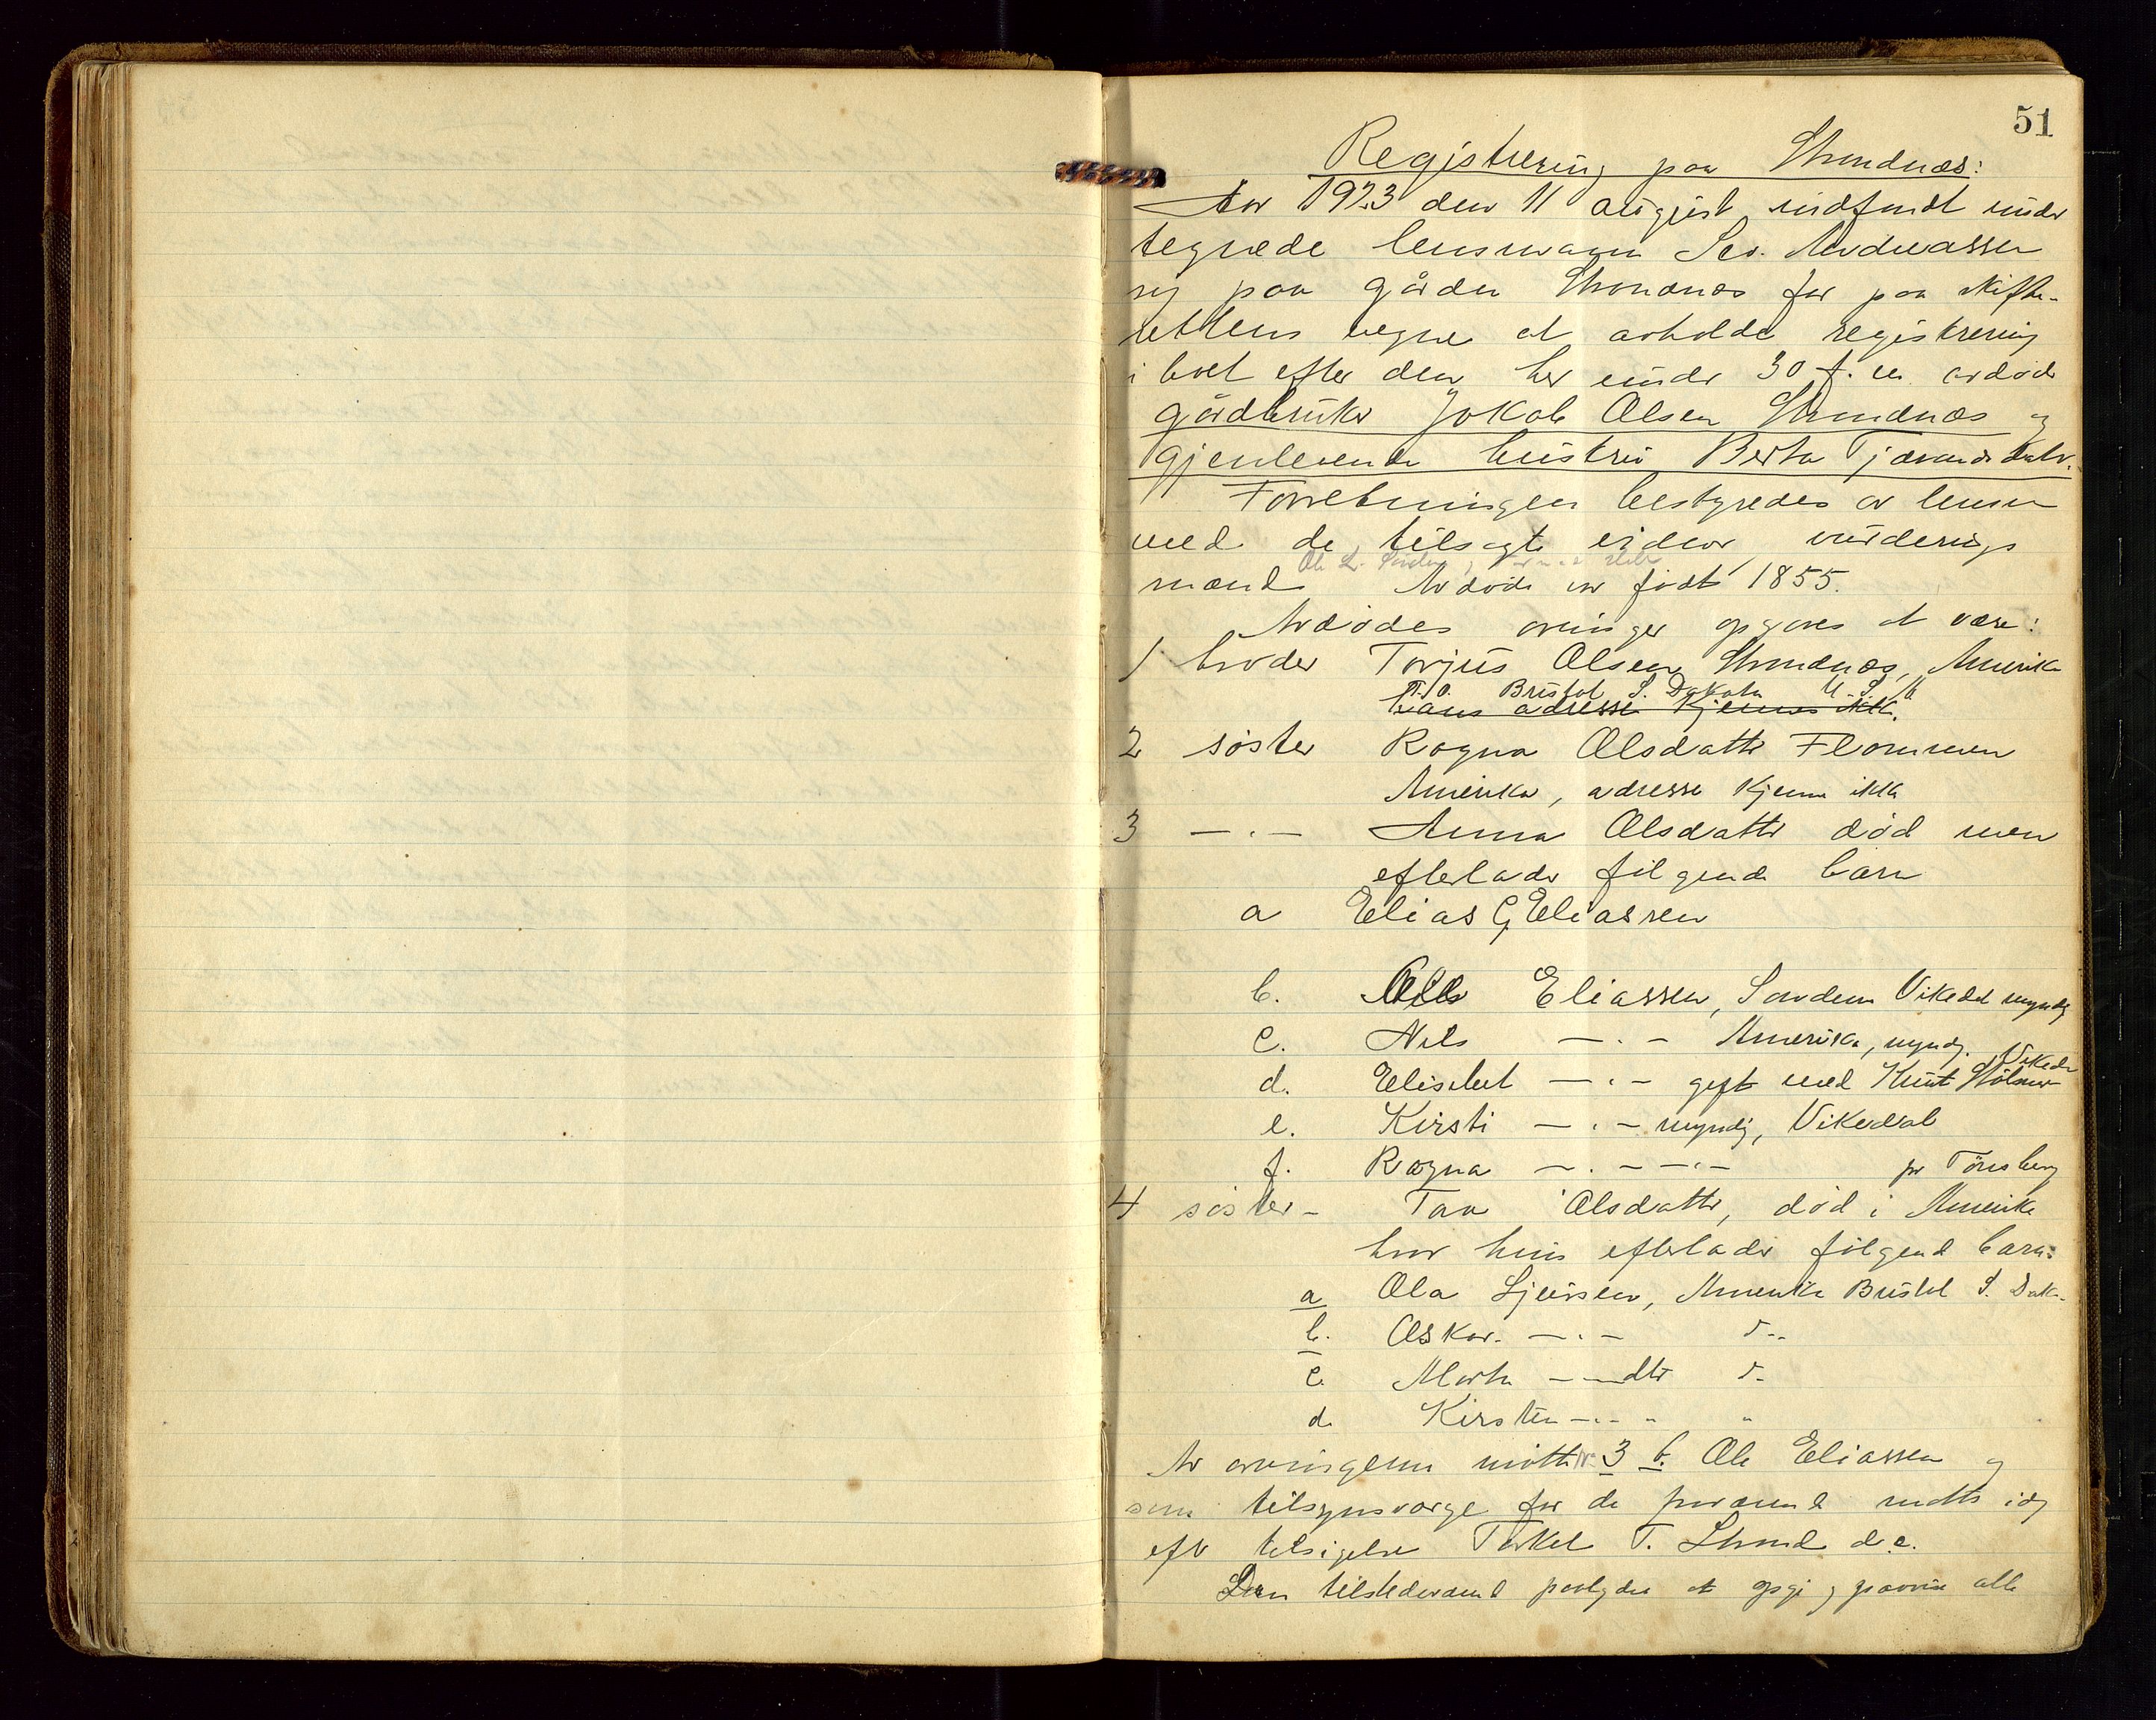 51
Registrering paa Strandnæs:
Aar 1923 den 11 august indfandt under
tegnede lensmann Sev. Andreassen
sig paa gården Strandnæs for paa skifte-
rettens vegne at avholde registrering
i boet efter den her under 30 f. m. avdöde
gårdbruker Jokob Olsen Strandnæs og
gjenlevende hustru Berta Tjærandsdatr.
Forretningen bestyredes av lensm
med de tilsagte eidsvor vurderings
mænd Avdöde var født 1855.
Avdödes arvinger opgaves at være:
1 broder Torjus Olsen Strandnæs, Amerika
P.O. Bristol S. Dakota U. S. A.
hans adresse kjennes ikke.
2 söster Ragna Olsdatter Flommen
Amerika, adresse kjennes ikke
3 — . — Anna Olsdatter död men
efterlader fölgende barn
a Elias G Eliassen
b. Ole Eliassen, Sandeid Vikedal myndig
c. Nils — . — Amerika, myndg.
d. Elisabet — . — gift med Knut Stölsnes Vikedal
e. Kirsti — . — myndig, Vikedal
f. Ragna — . — — . — pr Tönsberg
4 söster - Taa Olsdatter, död i Amerika
hvor hun efterlader fölgende barn:
a Ola Sjursen, Amerika Bristol S. Dak.
b. Oskar. — . — d..
c. Marta — — dtr d.
d. Kirsten — . . - "
Av arvingerne mötte nr 3 b. Ole Eliassen og
som tilsynsværge for de fraværende mötte idg
eftr tilsigelse Torkel T. Strand d.e.
Den tilstedeværende paalydes at opgi og paavise alle